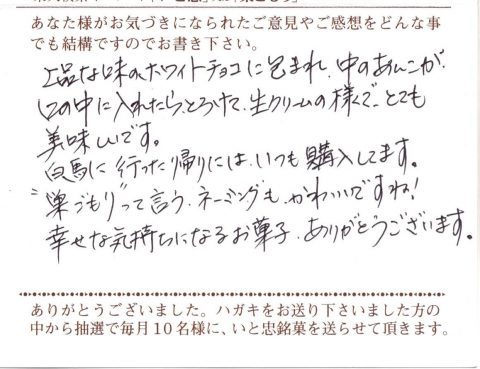 あなた様がお気づきになられたご意見やご感想をどんな事
でも結構ですのでお書き下さい。
上品な味のホワイトチョコに包まれ、中のあんこが、
口の中に入れたら、とろけて、生クリームの様で、とても
美味しいです。
白馬に行った帰りには、いつも購入してます。
“巣ごもり”って言う、ネーミングも、かわいいですね!
幸せな気持ちになるお菓子、ありがとうございます。
ありがとうございました。ハガキをお送り下さいました方の
中から抽選で毎月10名様に、いと忠銘菓を送らせて頂きます。